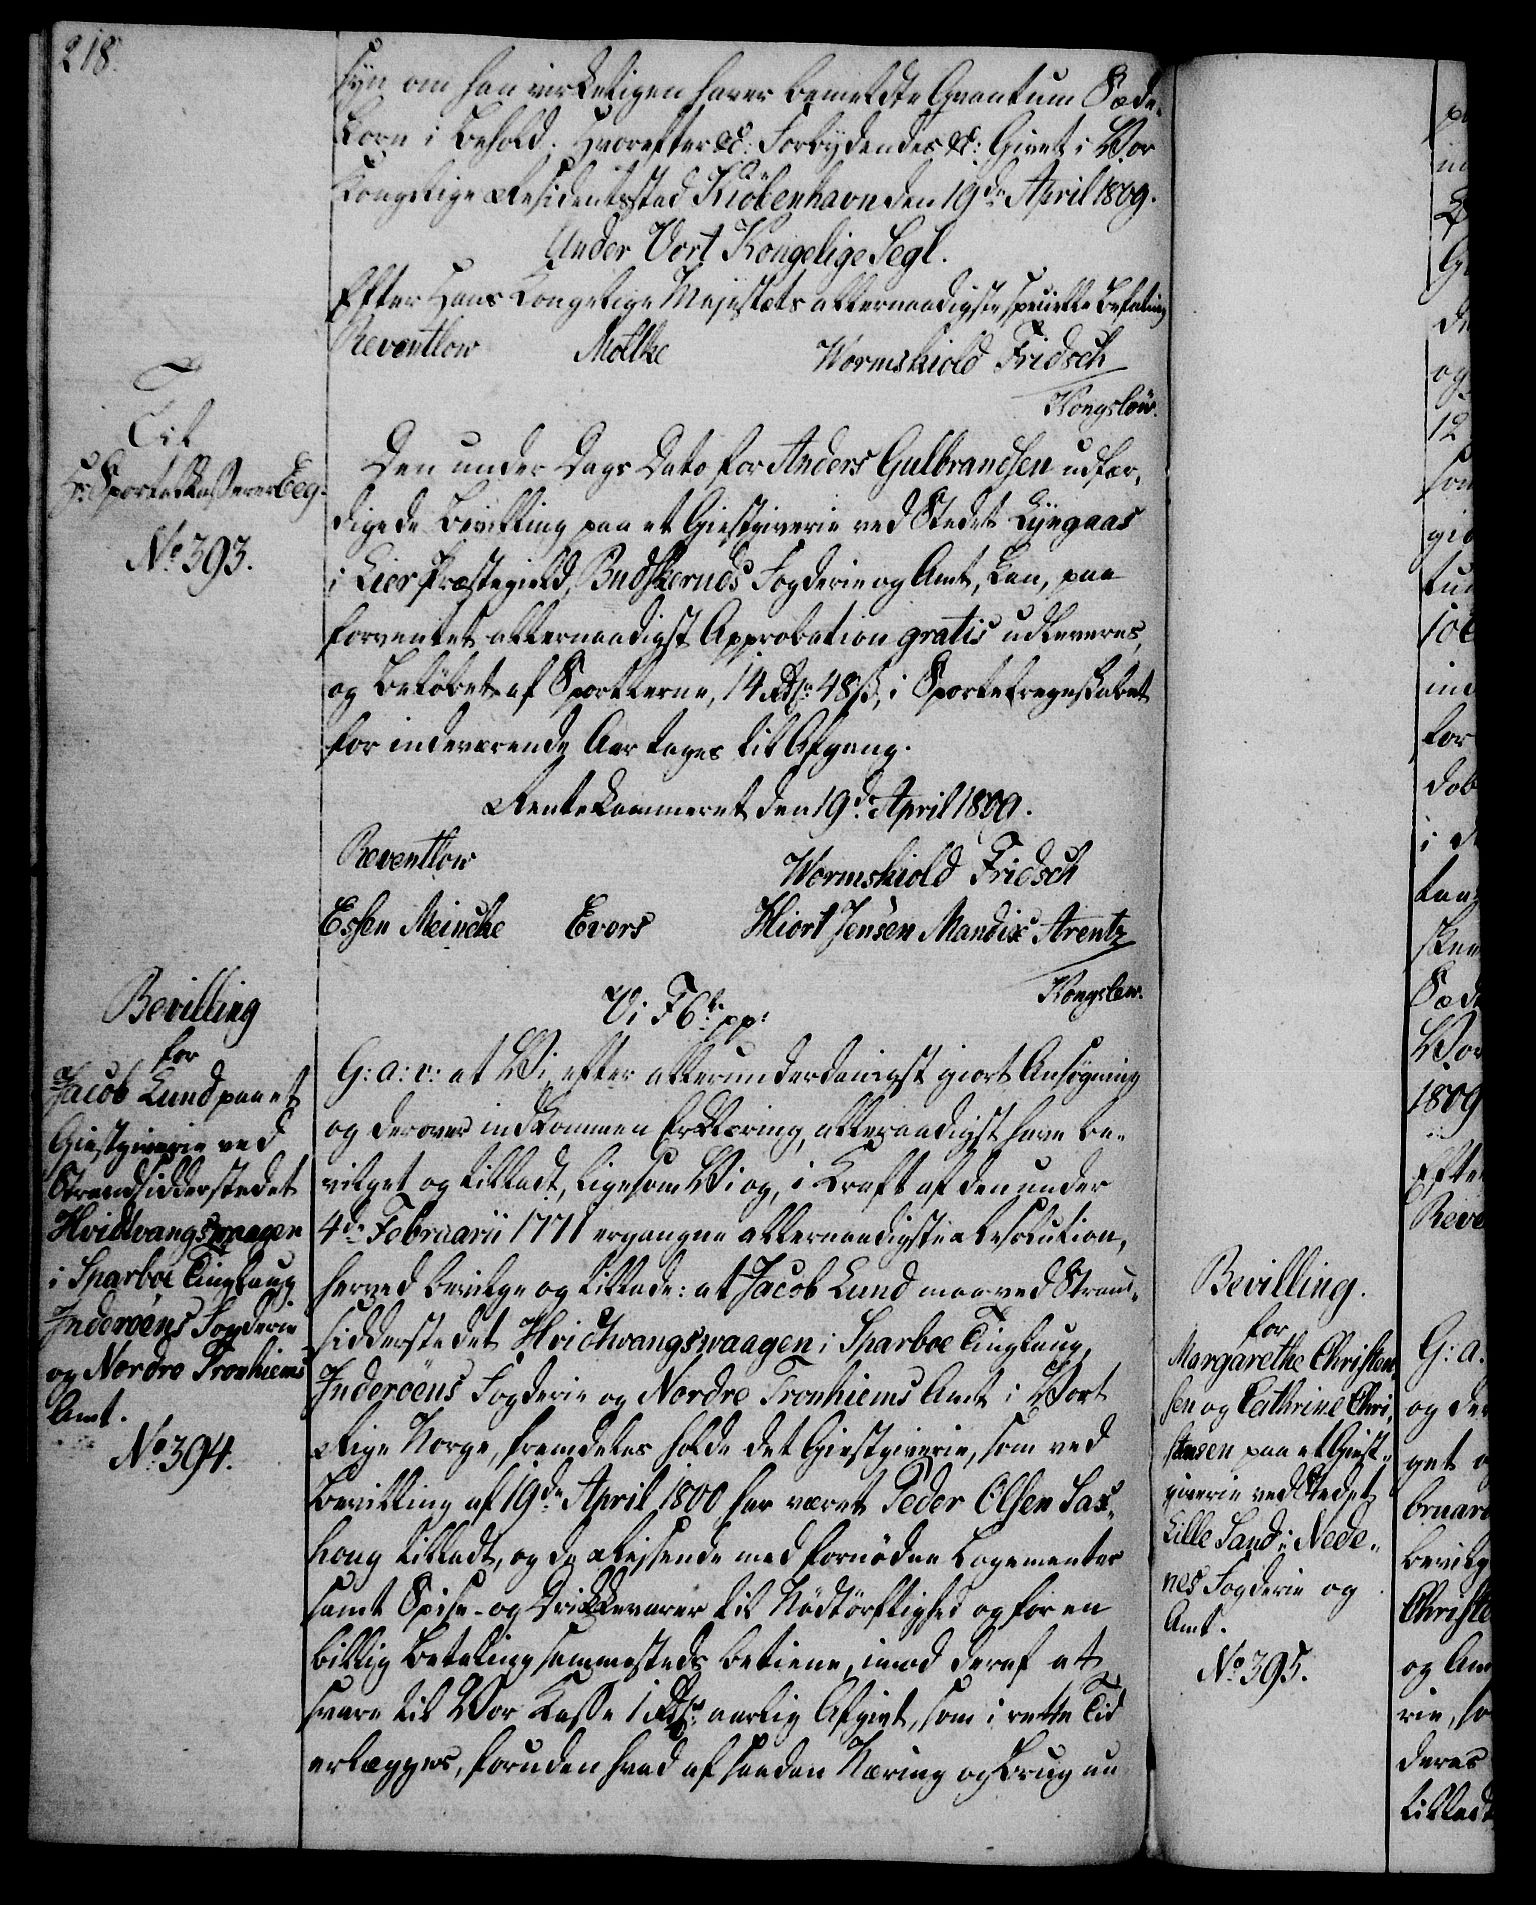 218.
syn om han virkeligen haver bemeldte Qvantum Sæde-
korn i Behold. Hvorefter &c: Forbydendes &c: Givet i Vor
Kongelige Residentsstad Kiöbenhavn den 19de April 1809.
Under Vort Kongelige Segl.
Efter Hans Kongelige Majestæts allernaadigste specielle Befaling
Reventlow Moltke Wormskiold Fridsch
Kongslöw.
Til
Hr: Sportelkasserer Eeg.
No 393.
Den under Dags Dato for Anders Gulbrandsen udfær-
digede Bevilling paa et Giestgiverie ved Stedet Lyngaas
i Lier Præstegield, Budskeruds Fogderie og Amt, kan, paa
forventet allernaadigst Approbation gratis udleveres,
og Belöbet af Sportlerne, 14 Rdlr 48 ß, i Sportelregnskabet
for indeværende Aar tages til Afgang.
Rentekammeret den 19de April 1809.
Reventlow Wormskiold Fridsch
Essen Meincke Evers Hiort Jensen Mandix Arentz
Kongslew.
Bevilling
for
Jacob Lund paa et
Giestgiverie ved
Strandsidderstedet
Hvidtvangswaagen
i Sparboe Tinglaug
Inderöens Fogderie
og Nordre Tronhiems
Amt.
No 394.
Vi F6te pp:
G: a: v: at Vi, efter allerunderdanigst giort Ansögning
og derover indkommen Erklæring, allernaadigst have be-
vilget og tilladt, ligesom Vi og, i Kraft af den under
4de Februarii 1771 ergangne allernaadigste Resolution,
herved bevilge og tillade: at Jacob Lund maa ved Strand-
sidderstedet Hvidtwangswaagen i Sparboe Tinglaug,
Inderöens Fogderie og Nordre Tronhiems Amt i Vort
Rige Norge, fremdeles holde det Giestgiverie, som ved
Bevilling af 19de April 1800 har været Peder Olsen Sax-
houg tilladt, og de Reisende med fornöden Logementer
samt Spise- og Drikkevarer til Nödtörftighed og for en
billig Betaling sammesteds betiene, imod deraf at
svare til Vor Kasse 1 Rdlr aarlig Afgivt, som i rette Tid
erlægges, foruden hvad af saadan Næring og Brug nu
Bevilling.
for
Margarethe Christen-
sen og Cathrine Chri-
stensen paa et Giest-
giverie ved Stedet
Lille Sand i Nede-
nes Fogderie og
Amt.
No 395.
G: a.
og der
get o
bruari
bevilg
Christe
og Am
rie, so
deres
tilladt